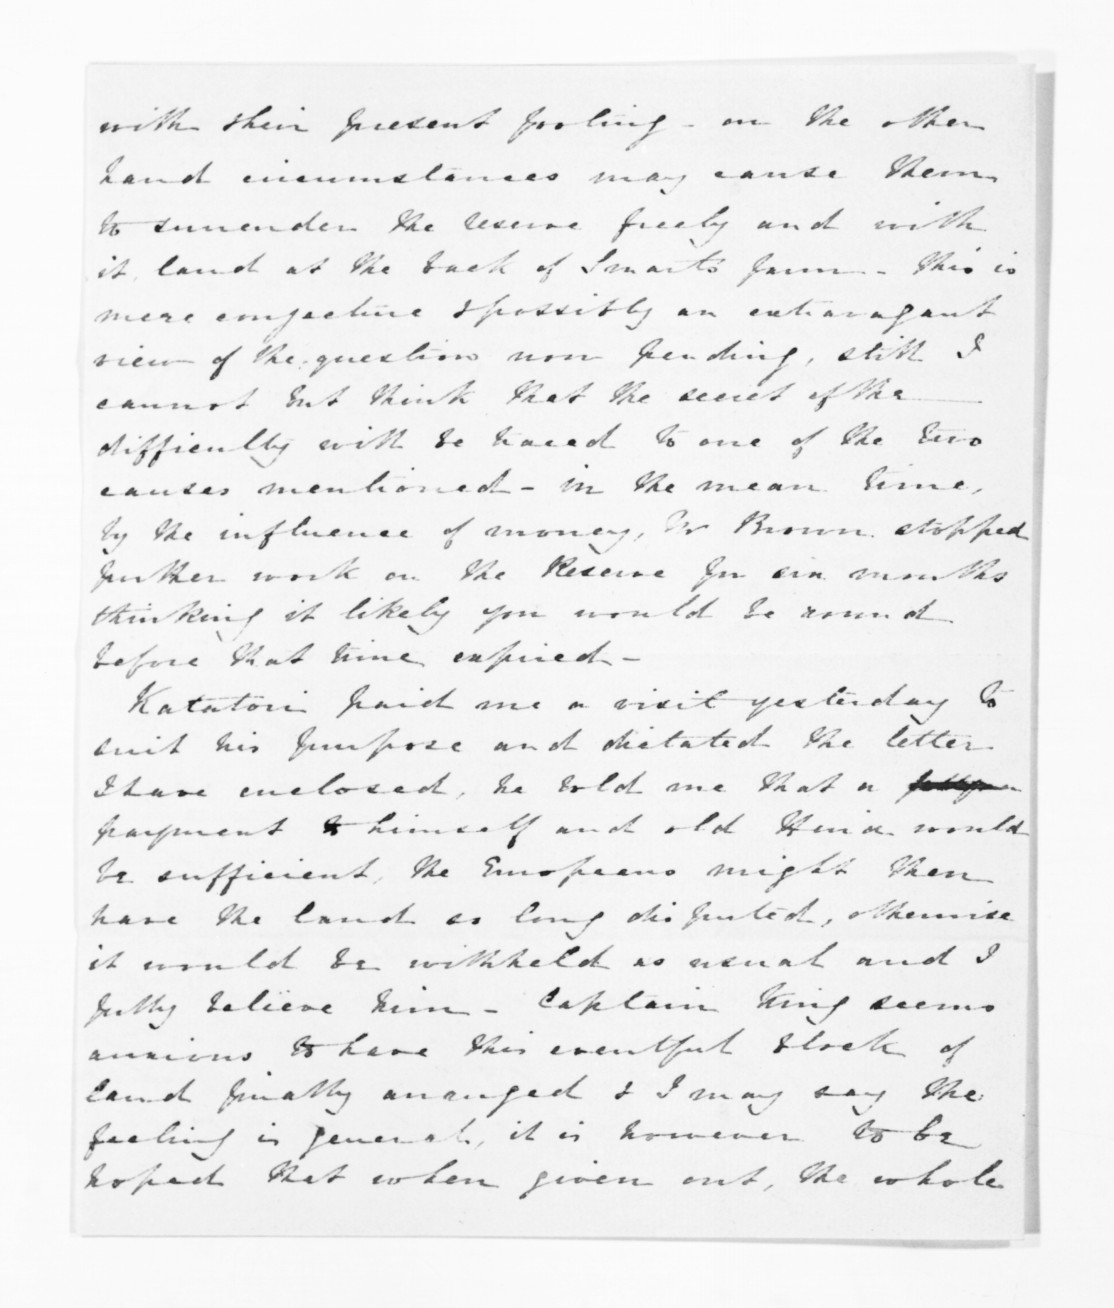 with their present footing - on the other
hand circumstances may cause them
to surrender the reserve freely and with
it, land at the back of Smart's farm - this is
mere conjecture & possibly an extravagant
view of the question now pending, still I
cannot but think that the secret of the
difficulty will be traced to one of the two
causes mentioned - in the mean time,
by the influence of money, Mr Brown stopped
further work on the Reserve for six months
thinking it likely you would be round
before that time expired -
Katatori paid me a visit yesterday to
suit his purpose and dictated the letter
I have enclosed, he told me that a
payment to himself and old Huia would
be sufficient, the Europeans might then
have the land so long disputed, otherwise
it would be withheld as usual and I
fully believe him - Captain King seems
anxious to have this eventful block of
land finally arranged & I may say the
feeling is general, it is however to be
hoped that when given out, the whole